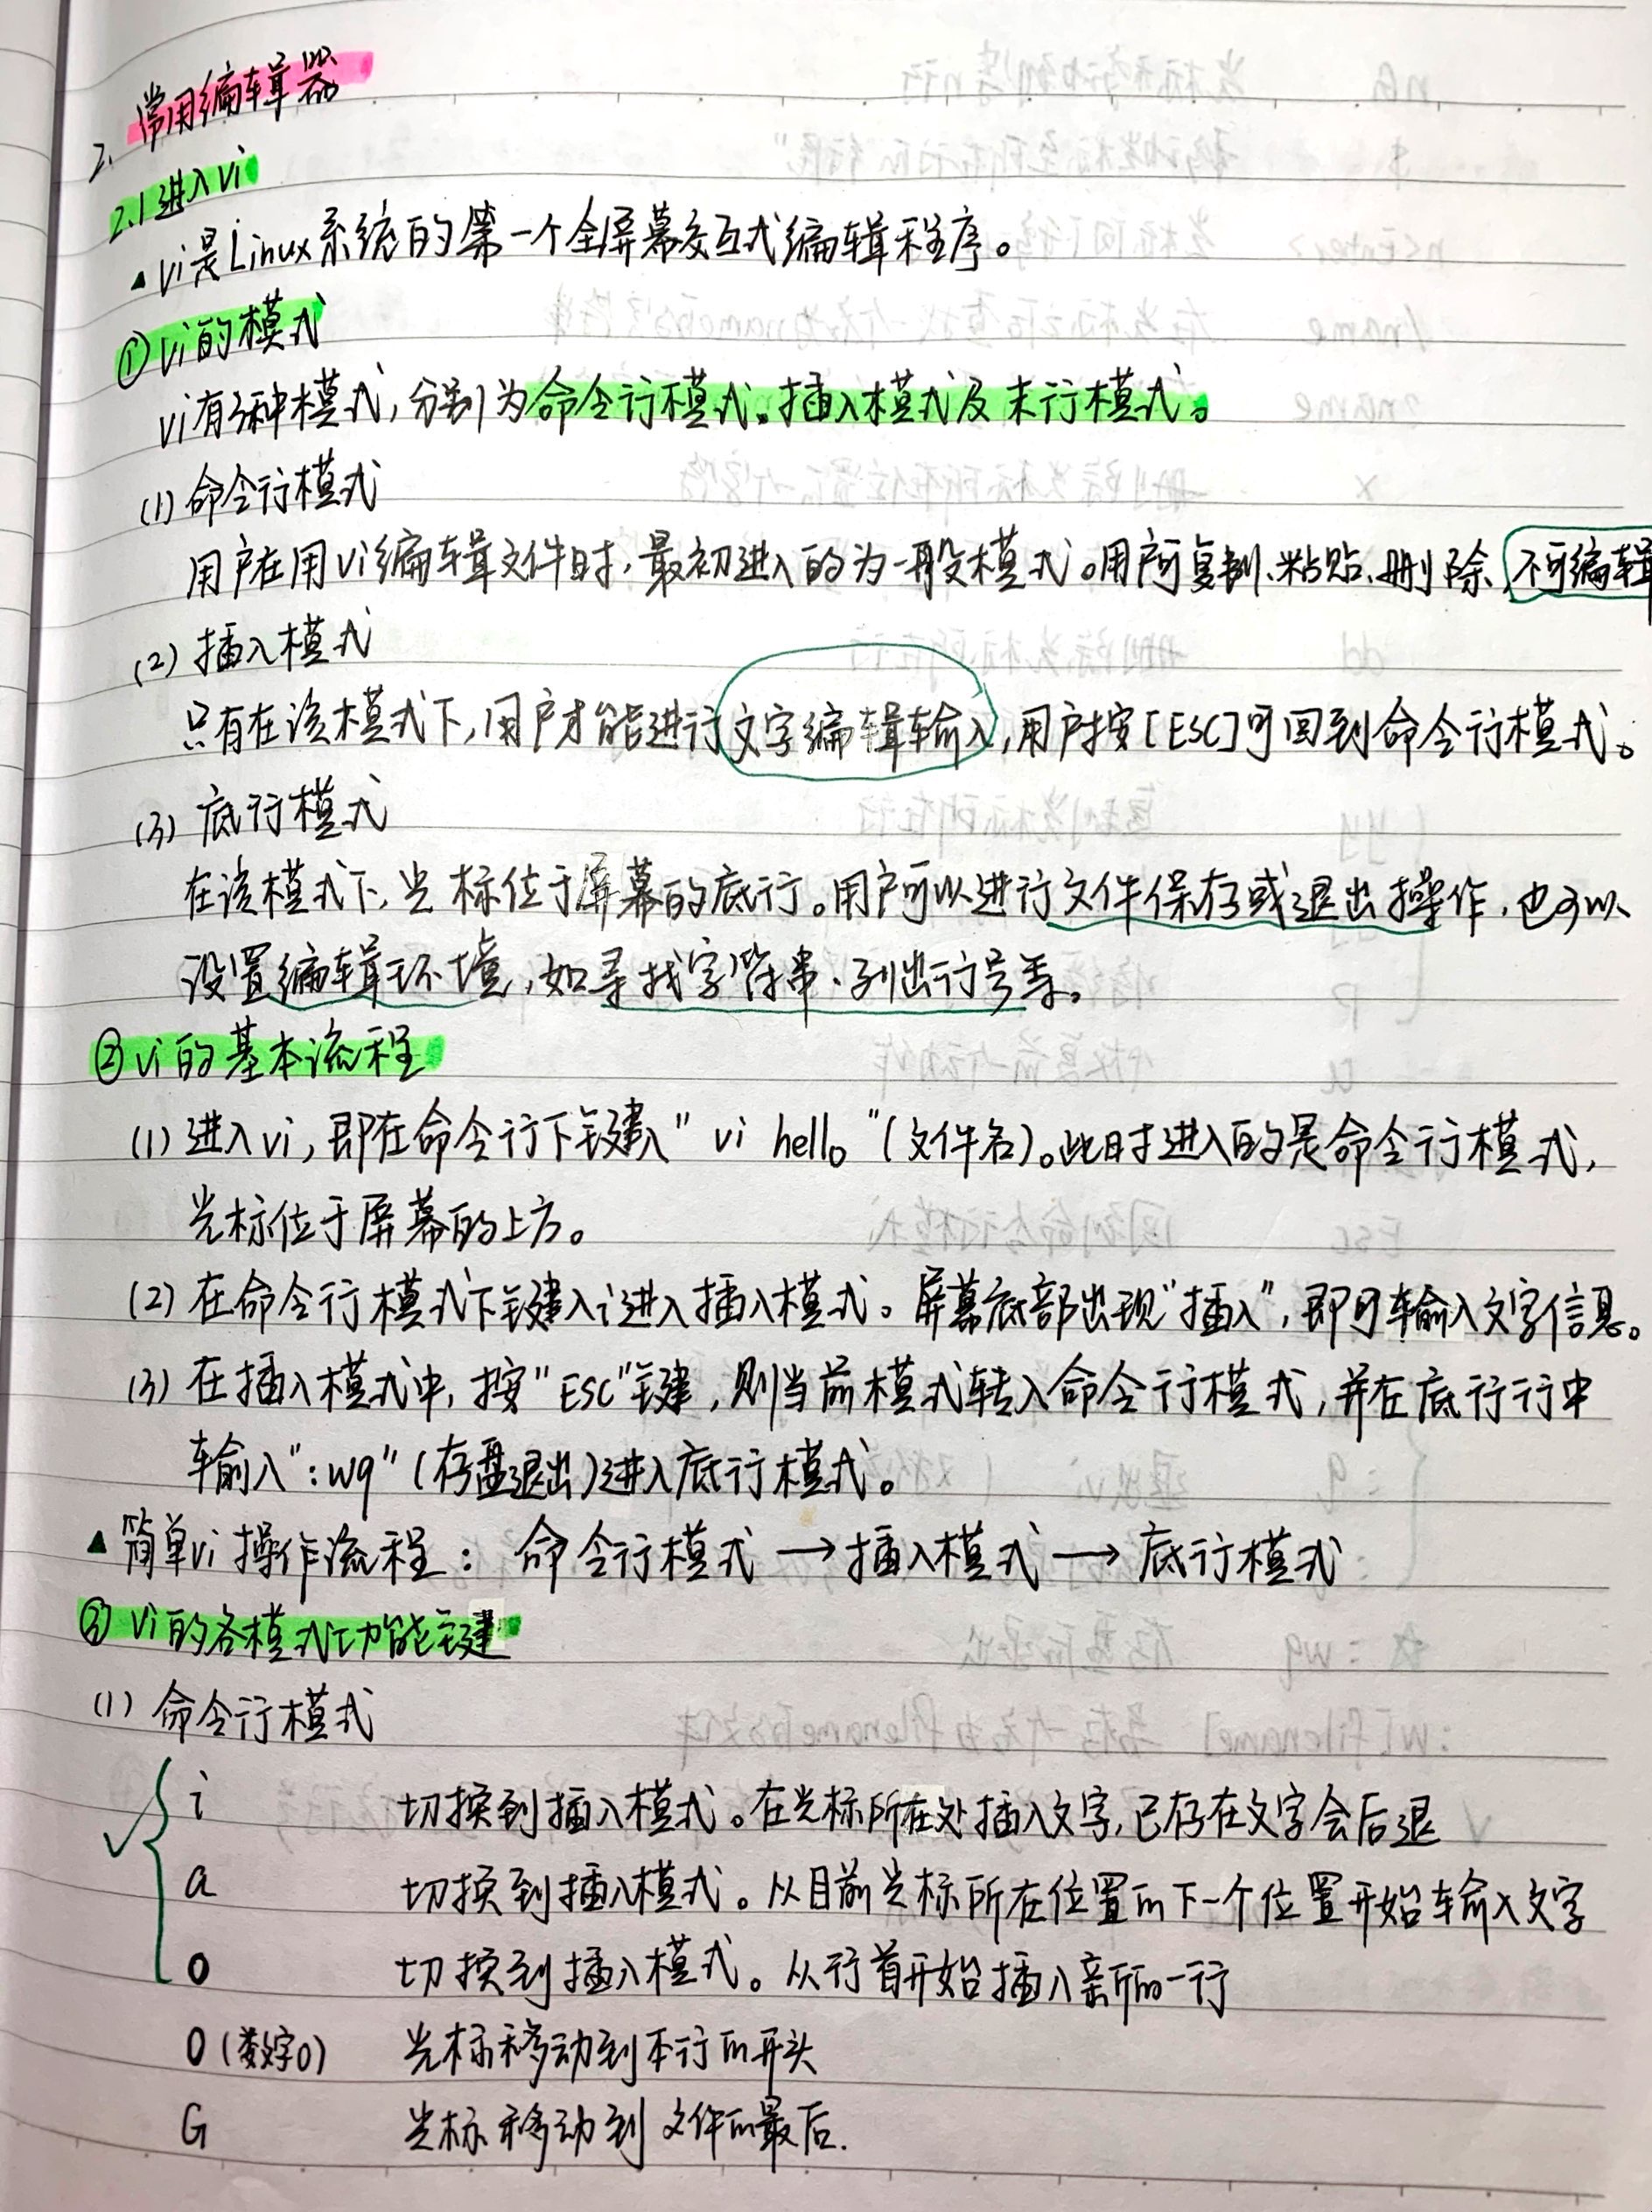 2. 常用编辑器
2.1 进入vi
▲ vi是Linux系统的第一个全屏幕交互式编辑程序。
① vi的模式
vi有3种模式,分别为命令行模式、插入模式及末行模式。
(1) 命令行模式
用户在用vi编辑文件时,最初进入的为一般模式。用户可复制、粘贴、删除,不可编辑
(2) 插入模式
只有在该模式下,用户才能进行文字编辑输入,用户按[ESC]可回到命令行模式。
(3) 底行模式
在该模式下,光标位于屏幕的底行。用户可以进行文件保存或退出操作,也可以
设置编辑环境,如寻找字符串、列出行号等。
② vi的基本流程
(1) 进入vi,即在命令行下键入"vi hello"(文件名)。此时进入的是命令行模式,
光标位于屏幕的上方。
(2) 在命令行模式下键入i进入插入模式。屏幕底部出现"插入",即可输入文字信息。
(3) 在插入模式中,按"ESC"键,则当前模式转入命令行模式,并在底行行中
输入":wq"(存盘退出)进入底行模式。
▲ 简单vi操作流程: 命令行模式 → 插入模式 → 底行模式
③ vi的各模式功能键
(1) 命令行模式
i 切换到插入模式。在光标所在处插入文字,已存在文字会后退
a 切换到插入模式。从目前光标所在位置的下一个位置开始输入文字
o 切换到插入模式。从行首开始插入新的一行
0(数字0) 光标移动到本行的开头
G 光标移动到文件的最后.